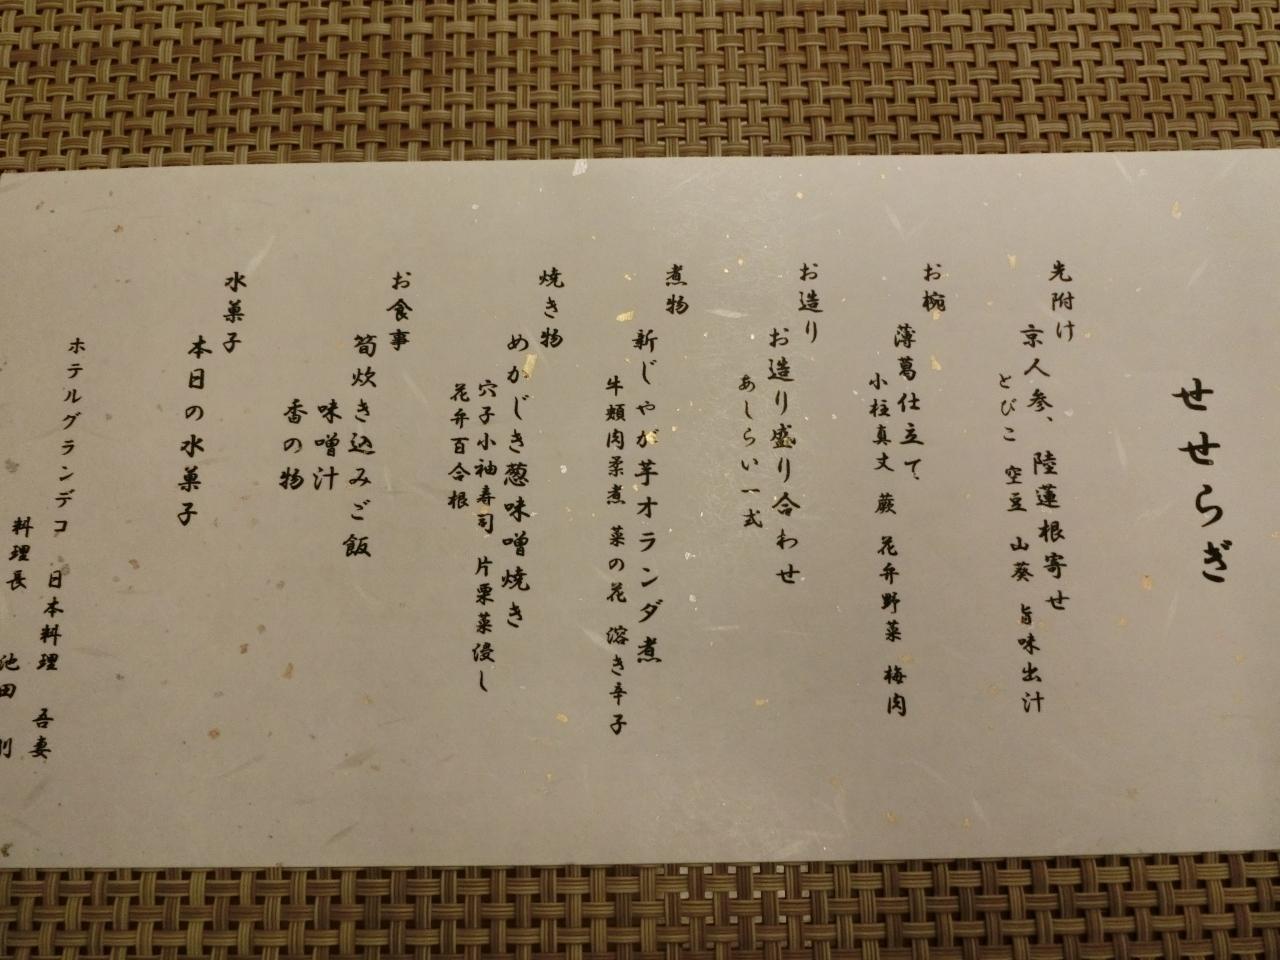 せせらぎ
先附け
京人参、陸蓮根寄せ
とびこ 空豆 山葵 旨味出汁
お椀
薄葛仕立て、
小柱真丈 蕨 花弁野菜 梅肉
お造り
お造り盛り合わせ
あしらい一式
煮物
新じゃが芋オランダ煮
牛頬肉柔煮 菜の花 溶き辛子
焼き物
めかじき葱味噌焼き
穴子小袖寿司 片栗菜浸し
花弁百合根
お食事
筍炊き込みご飯
味噌汁
香の物
水菓子
本日の水菓子
ホテルグランデコ 日本料理 吾妻
料理長 池田